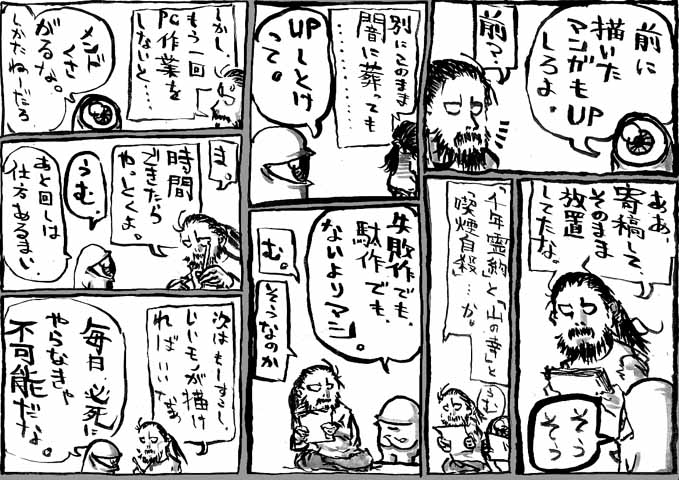 前に
描いた
マンガも
UP
しろよ。
前？
ああ、
寄稿して
そのまま
放置
してたな。
そう
そう
「千年霊約」と「山の幸」と
「喫煙自殺…か。
うむ
別にこのまま
闇に葬っても
‥‥‥‥
UP
しとけ
って。
失敗作でも、
駄作でも、
ないよりマシ。
む。
そうなのか
しかし、
もう一回
PC作業を
しないと‥‥
メンド
くさ
がるな。
しかたねーだろ
ま。
時間
できたら
やっとくよ。
うむ。
あと回しは
仕方あるまい。
次はもーすこし
いいモノが描け
ればいいなあ
毎日必死に
やらなきゃ
不可能だな。